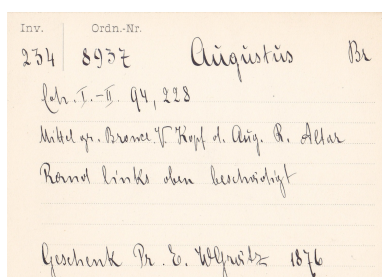 Inv. Ordn.-Nr.
234 8937 Augustus Br
Coh. I.-II. 94, 228
Mittel gr. Bronce. V. Kopf d. Aug. R. Altar
Rand links oben beschädigt
Geschenk Dr. E. 1876